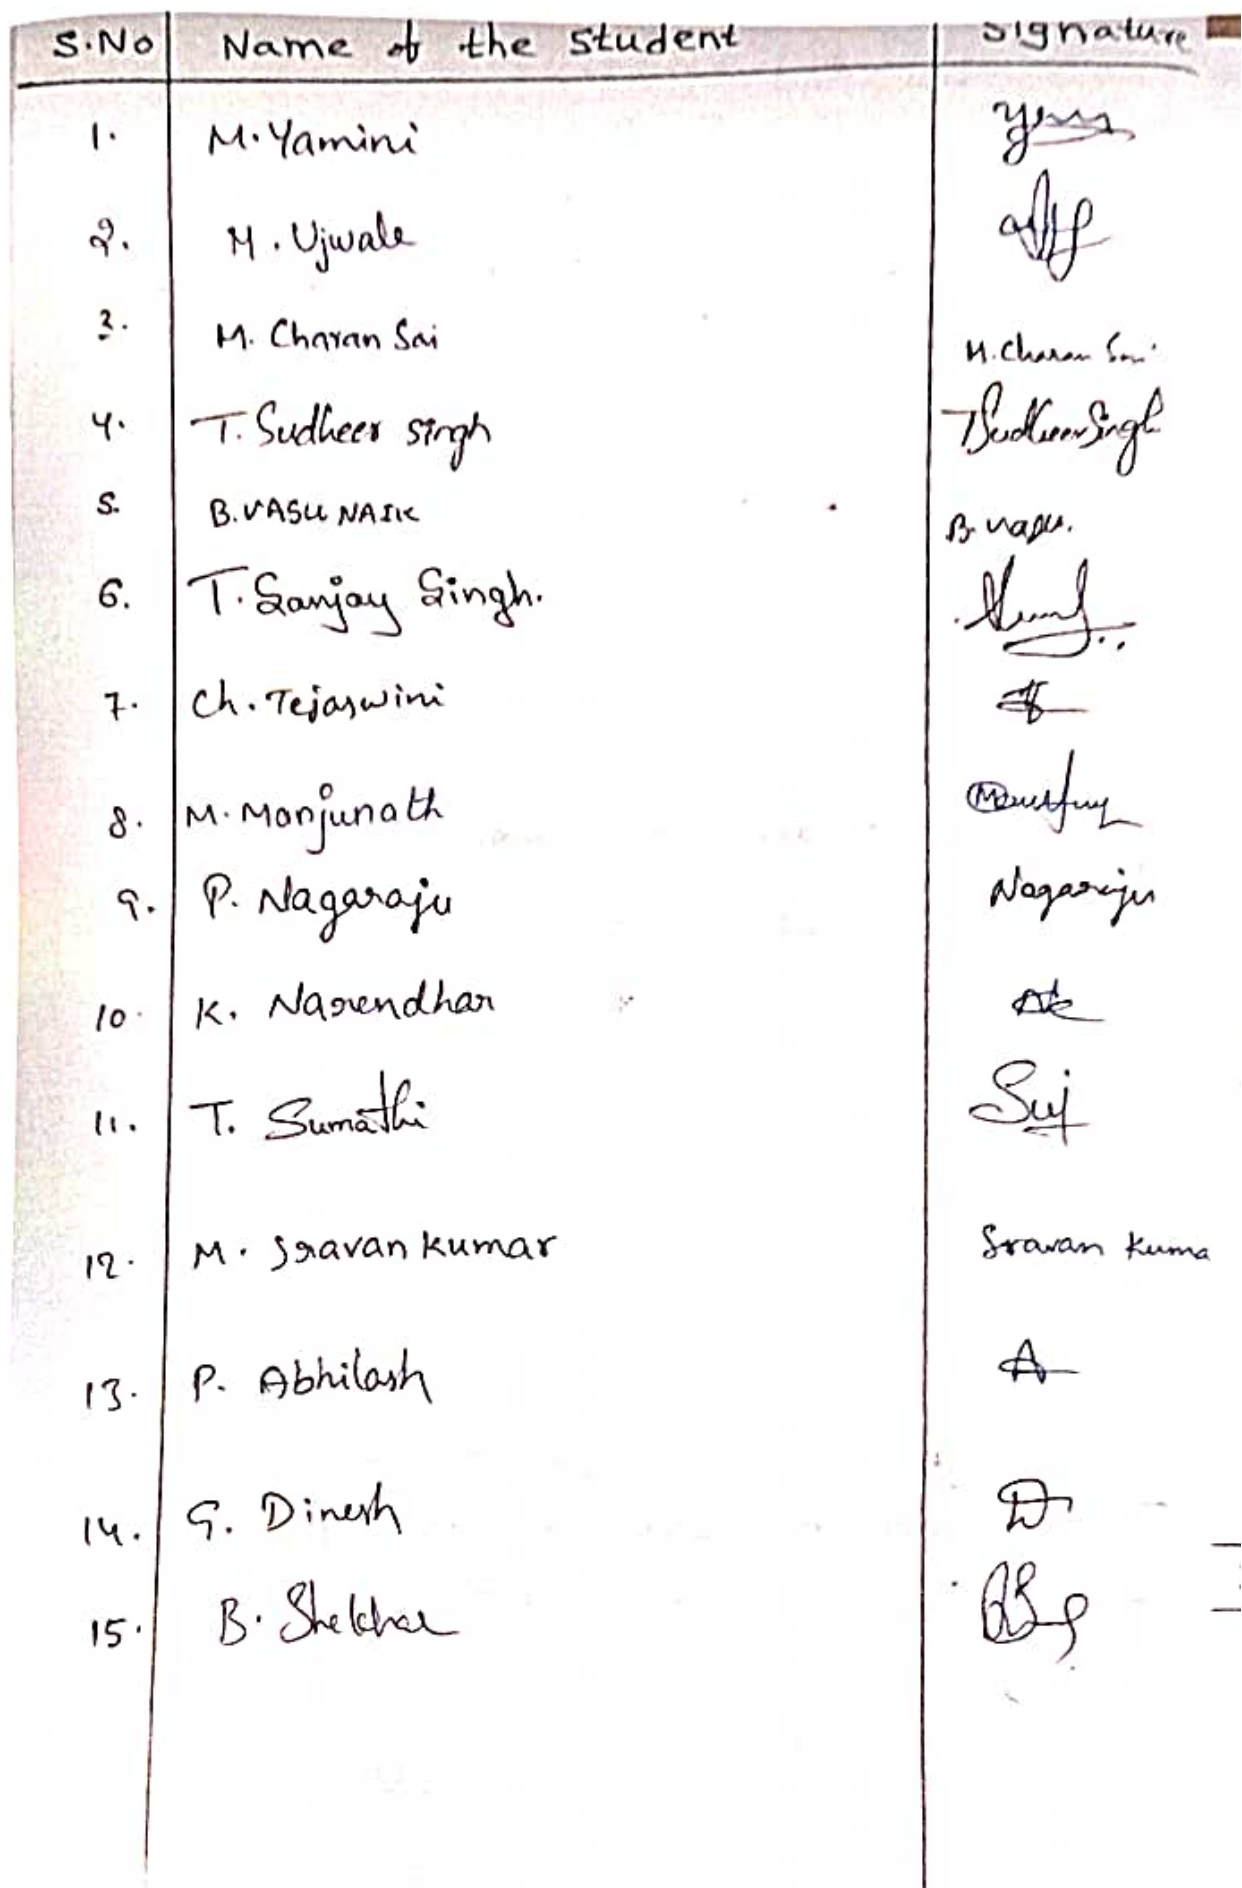 S.No Name of the Student Signature
1. M. Yamini
2. M. Ujwale
3. M. Charan Sai M. Charan Sai
4. T. Sudheer Singh T Sudheer Singh
5. B. VASU NAIK B. Vasu.
6. T. Sanjay Singh.
7. Ch. Tejaswini
8. M. Manjunath
9. P. Nagaraju Nagaraju
10. K. Narendhar
11. T. Sumathi
12. M. Sravan Kumar Sravan Kuma
13. P. Abhilash A
14. G. Dinesh D
15. B. Shekhar